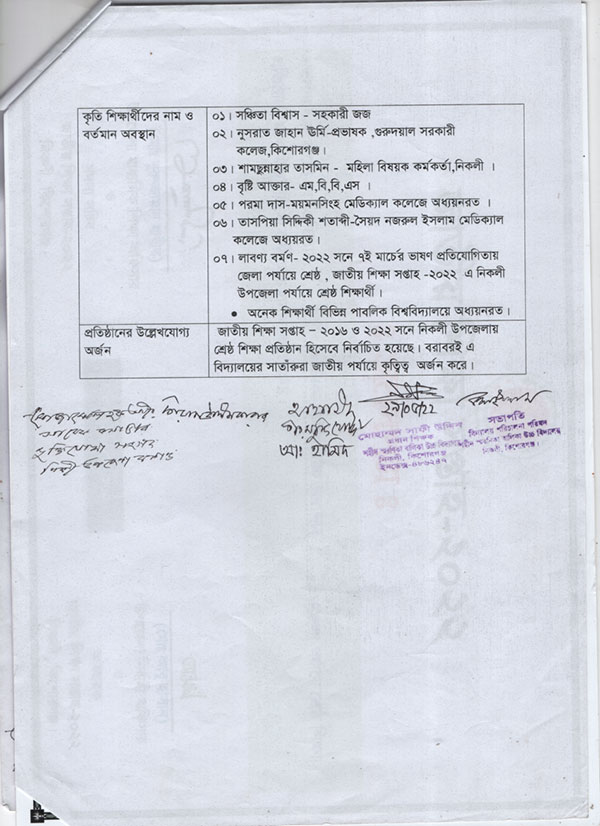 কৃতি শিক্ষার্থীদের নাম ও
বর্তমান অবস্থান
০১। সঞ্চিতা বিশ্বাস - সহকারী জজ
০২। নুসরাত জাহান ঊর্মি-প্রভাষক ,গুরুদয়াল সরকারী
কলেজ,কিশোরগঞ্জ।
০৩। শামছুন্নাহার তাসমিন - মহিলা বিষয়ক কর্মকর্তা,নিকলী ।
০৪। বৃষ্টি আক্তার- এম,বি,বি,এস ।
০৫। পরমা দাস-ময়মনসিংহ মেডিক্যাল কলেজে অধ্যয়নরত ।
০৬। তাসপিয়া সিদ্দিকী শতাব্দী-সৈয়দ নজরুল ইসলাম মেডিক্যাল
কলেজে অধ্যয়রত।
০৭। লাবণ্য বর্মণ- ২০২২ সনে ৭ই মার্চের ভাষণ প্রতিযোগিতায়
জেলা পর্যায়ে শ্রেষ্ঠ , জাতীয় শিক্ষা সপ্তাহ -২০২২ এ নিকলী
উপজেলা পর্যায়ে শ্রেষ্ঠ শিক্ষার্থী।
• অনেক শিক্ষার্থী বিভিন্ন পাবলিক বিশ্ববিদ্যালয়ে অধ্যয়নরত।
প্রতিষ্ঠানের উল্লেখযোগ্য
অর্জন
জাতীয় শিক্ষা সপ্তাহ – ২০১৬ ও ২০২২ সনে নিকলী উপজেলায়
শ্রেষ্ঠ শিক্ষা প্রতিষ্ঠান হিসেবে নির্বাচিত হয়েছে। বরাবরই এ
বিদ্যালয়ের সাতাঁরুরা জাতীয় পর্যায়ে কৃত্বিত্ব অর্জন করে।
আঃ হামিদ
প্রধান শিক্ষক
শহীদ স্মরণিকা বালিকা উচ্চ বিদ্যালয়
নিকলী, কিশোরগঞ্জ
ইনডেক্স-৪৮৬২৪৭
সভাপতি
বিদ্যালয় পরিচালনা পরিষদ
শহীদ স্মরণিকা বালিকা উচ্চ বিদ্যালয়
নিকলী, কিশোরগঞ্জ।